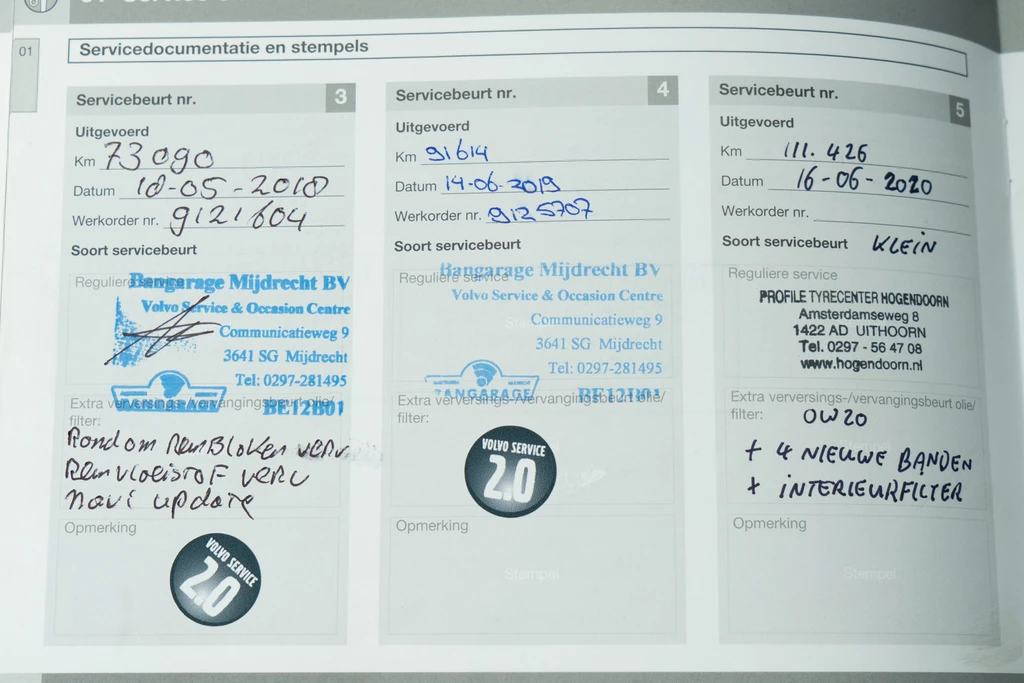 01
Servicedocumentatie en stempels
Servicebeurt nr. 3
Uitgevoerd
Km 73090
Datum 18-05-2018
Werkorder nr. 9121604
Soort servicebeurt
Reguliere service
Bangarage Mijdrecht BV
Volvo Service & Occasion Centre
Communicatieweg 9
3641 SG Mijdrecht
Tel: 0297-281495
BANGARAGE
BE12B01
Extra verversings-/vervangingsbeurt olie/
filter:
Rondom RemBlokken verv.
Remvloeistof verv
navi update
Opmerking
VOLVO SERVICE
2.0
Servicebeurt nr. 4
Uitgevoerd
Km 91614
Datum 14-06-2019
Werkorder nr. 9125707
Soort servicebeurt
Reguliere service
Bangarage Mijdrecht BV
Volvo Service & Occasion Centre
Communicatieweg 9
3641 SG Mijdrecht
Tel: 0297-281495
BANGARAGE
BE12H01
Extra verversings-/vervangingsbeurt olie/
filter:
VOLVO SERVICE
2.0
Opmerking
Stempel
Servicebeurt nr. 5
Uitgevoerd
Km 111.426
Datum 16-06-2020
Werkorder nr.
Soort servicebeurt KLEIN
Reguliere service
PROFILE TYRECENTER HOGENDOORN
Amsterdamseweg 8
1422 AD UITHOORN
Tel. 0297 - 56 47 08
www.hogendoorn.nl
Extra verversings-/vervangingsbeurt olie/
filter: 0W20
+ 4 NIEUWE BANDEN
+ INTERIEURFILTER
Opmerking
Stempel